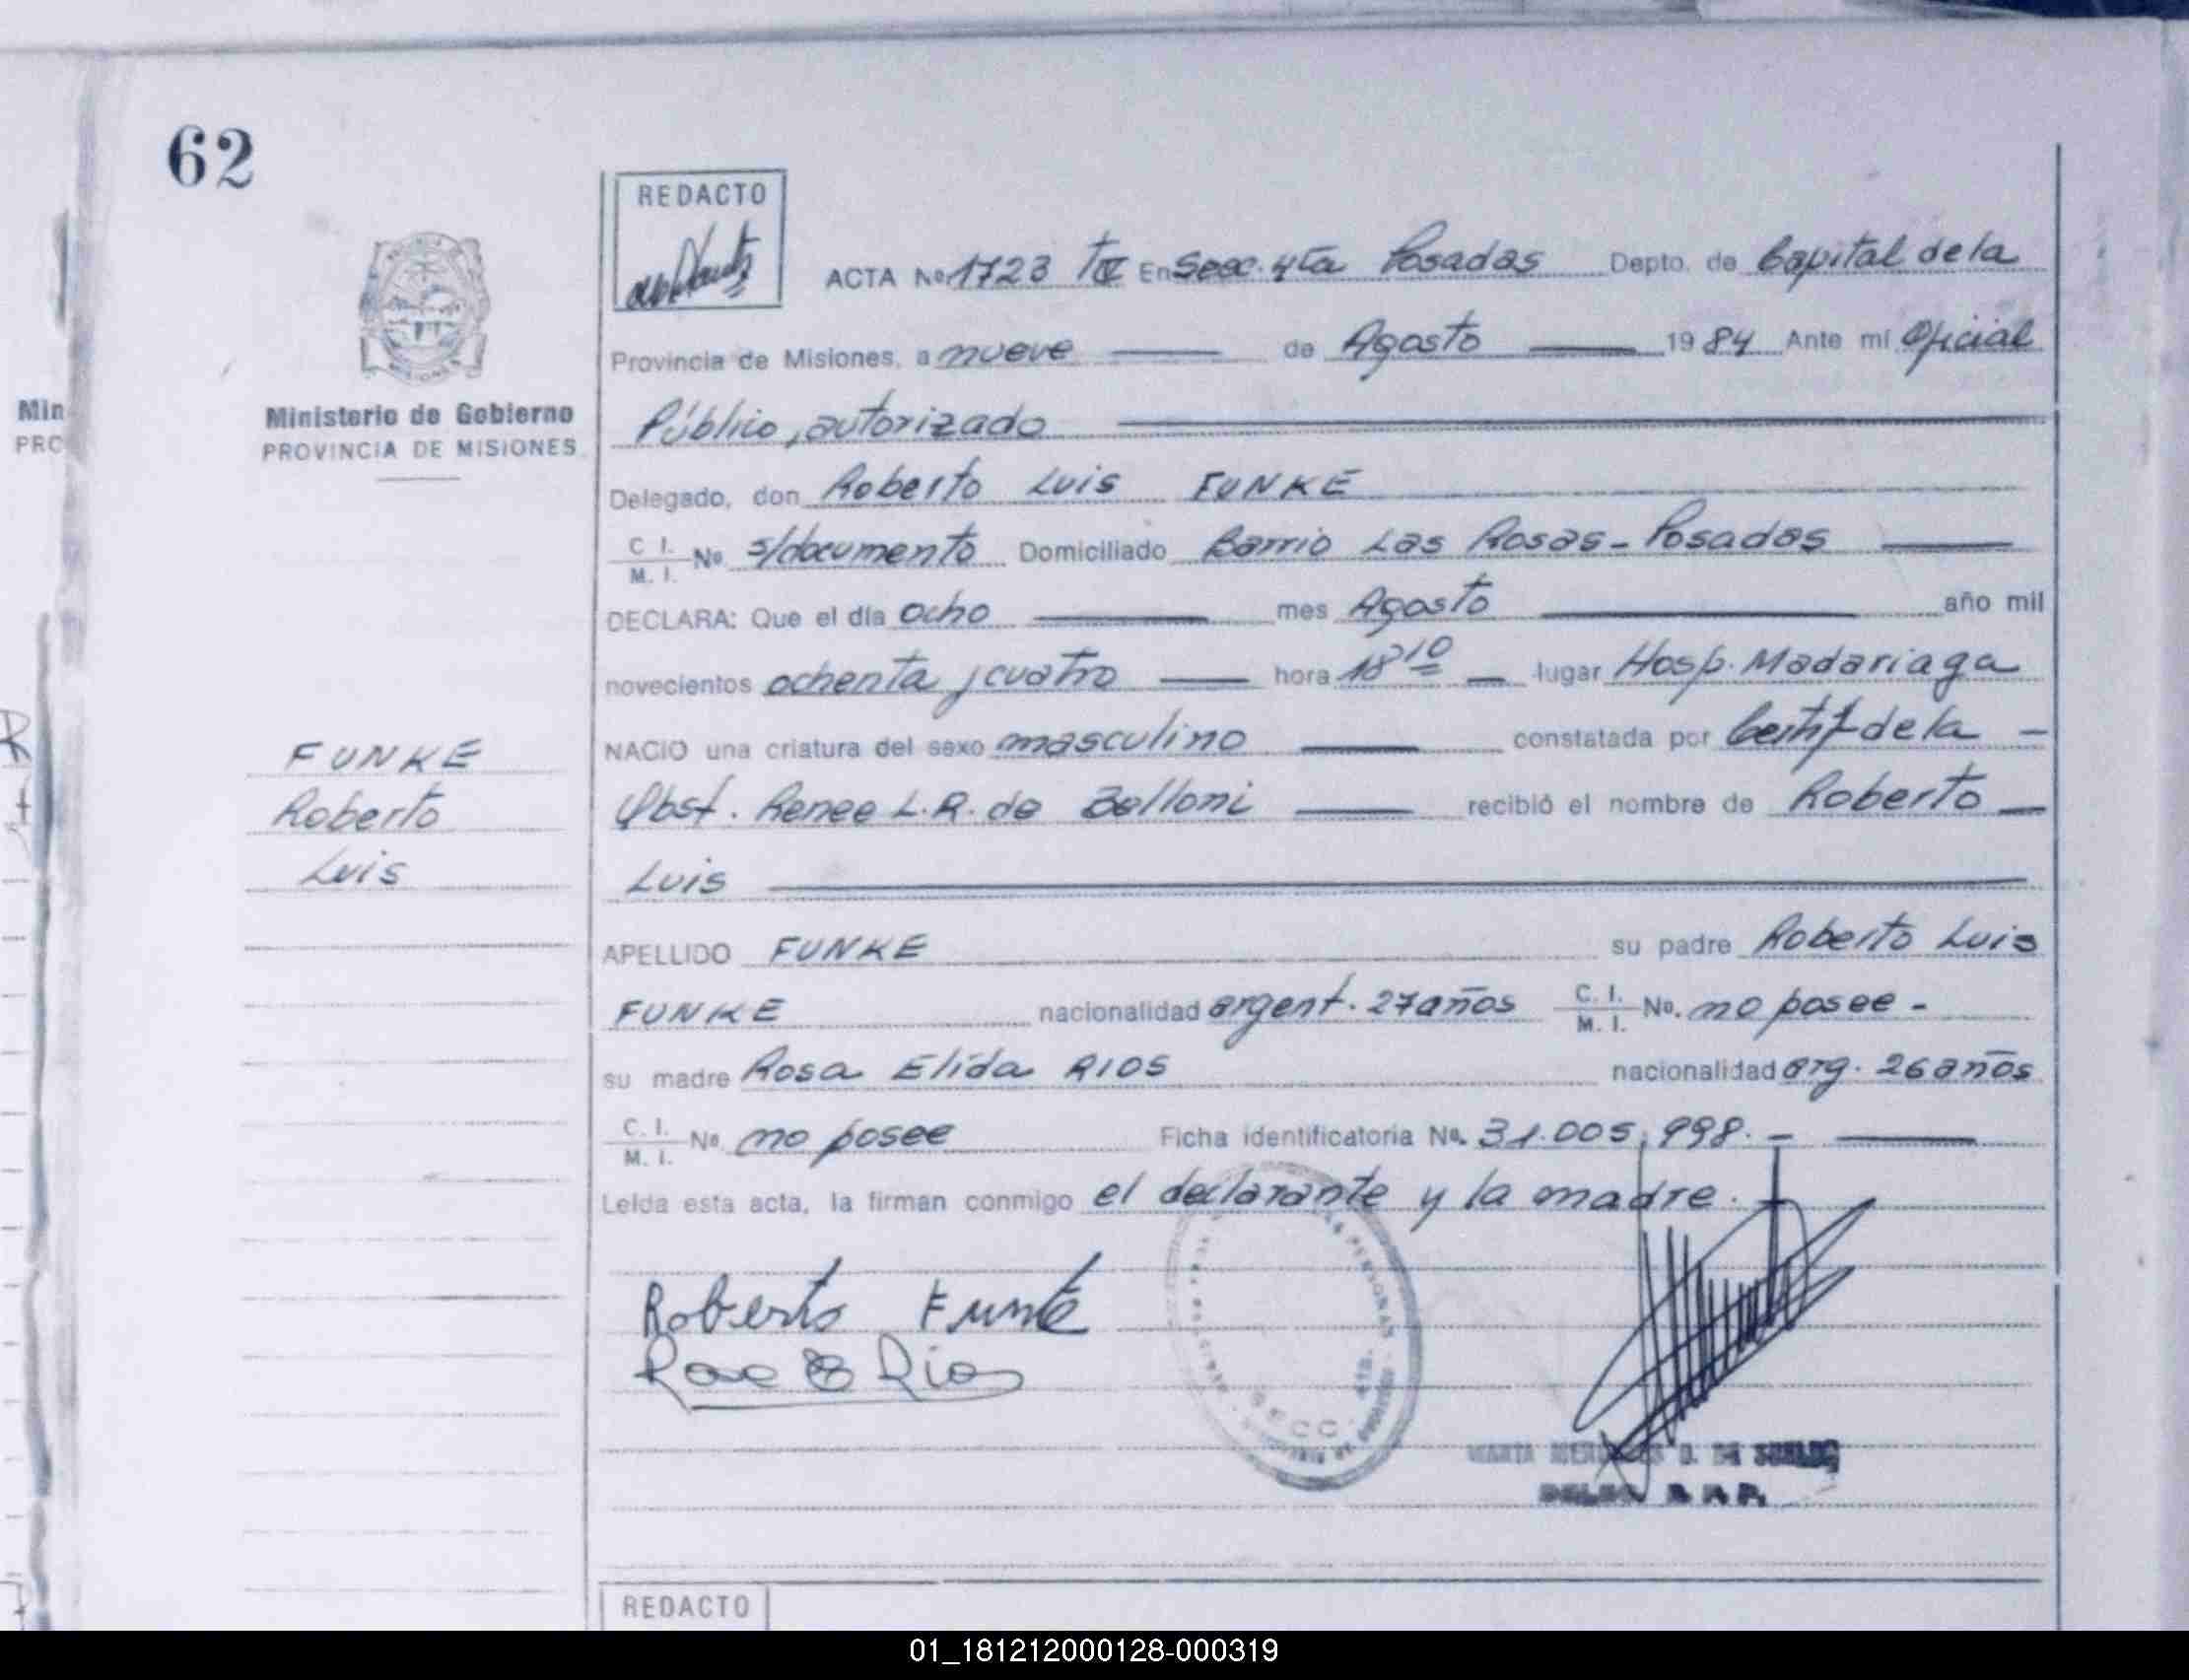 62
REDACTO
ACTA No 1723 En Secc. 4ta Posadas Depto. de Capital de la
Provincia de Misiones, a nueve de Agosto 1984 Ante mí Oficial
Público, autorizado
Min
PRO
Ministerio de Gobierno
PROVINCIA DE MISIONES
Delegado, don Roberto Luis FUNKE
C. I. M. I. No s/documento Domiciliado Barrio Las Rosas - Posadas
DECLARA: Que el día ocho mes Agosto año mil
novecientos ochenta y cuatro hora 18 10 lugar Hosp. Madariaga
NACIO una criatura del sexo masculino constatada por Certif de la -
Obst. Renee L.R. de Belloni recibió el nombre de Roberto
Luis
FUNKE
Roberto
Luis
APELLIDO FUNKE su padre Roberto Luis
FUNKE nacionalidad argent. 27 años C. I. M. I. No. no posee -
su madre Rosa Elida RIOS nacionalidad arg. 26 años
C. I. M. I. No. no posee Ficha identificatoria No. 31.005.998. -
Leída esta acta, la firman conmigo el declarante y la madre.
Roberto Funke
Rosa E Rios
SECC. 4ta.
DE LAS PERSONAS
REDACTO
01_181212000128-000319